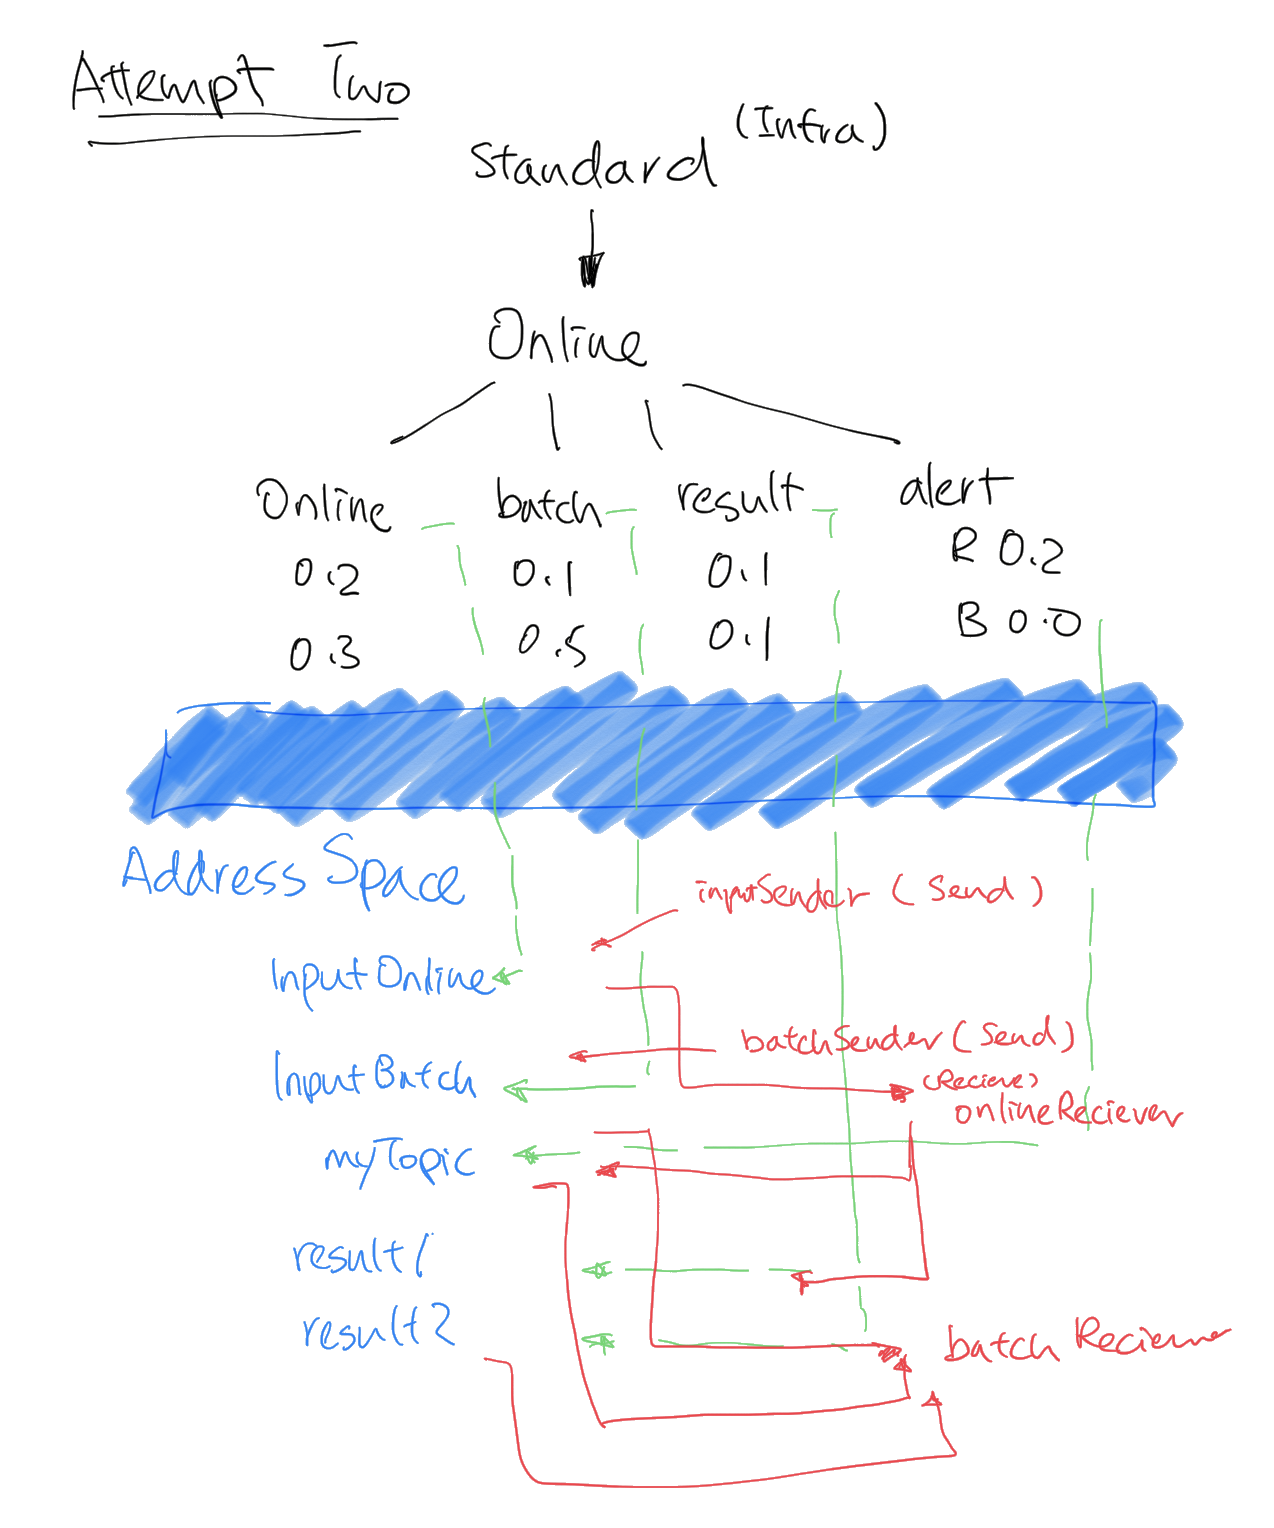 Attempt Two
Standard (Infra)
Online
Online batch result alert
0.2 0.1 0.1 R 0.2
0.3 0.5 0.1 B 0.0
Address Space
inputSender (Send)
InputOnline
batchSender (Send)
InputBatch
(Recieve)
onlineReciever
myTopic
result1
result2
batch Reciever